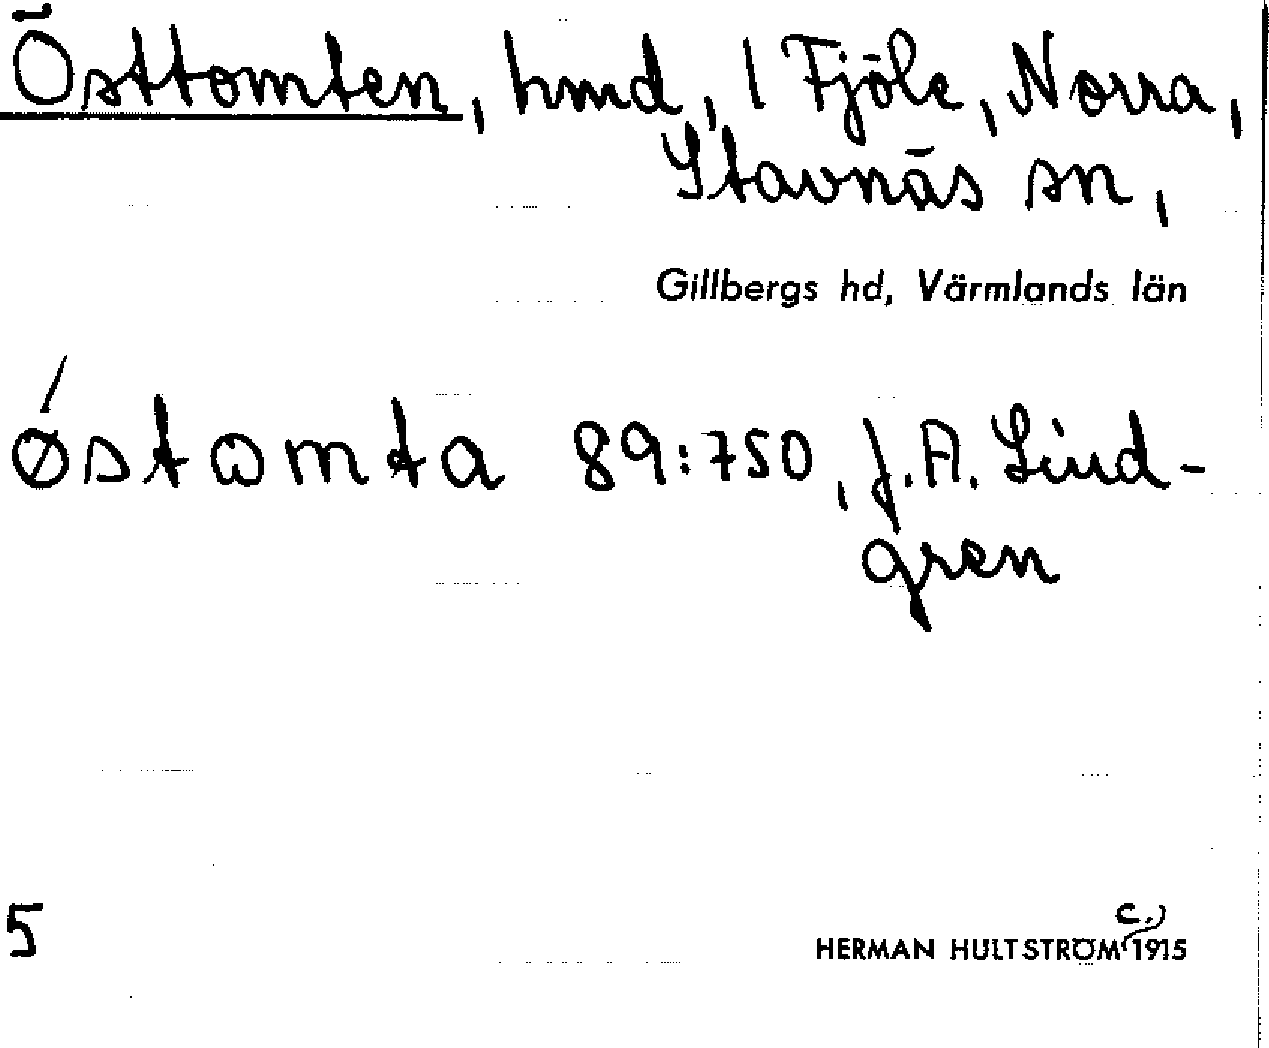 Östtomten, hmd, 1 Fjöle, Norra,
Stavnäs sn,
Gillbergs hd, Värmlands län
ǿstωmta 89:750, J.A. Lind-
gren
5
c.
HERMAN HULTSTRÖM 1915